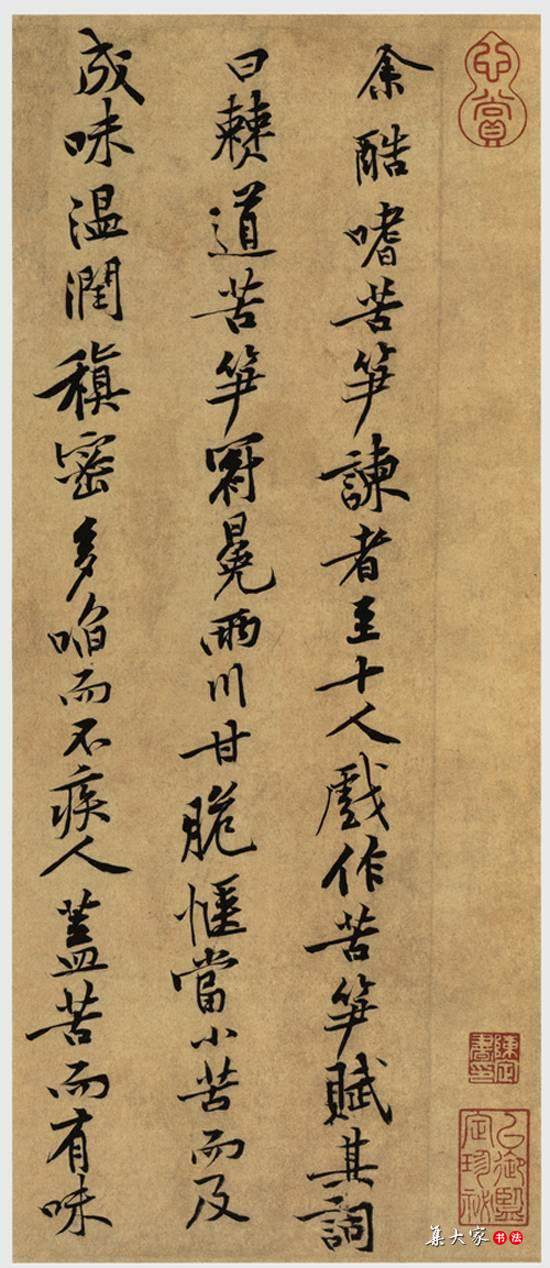 心賞
余酷嗜苦笋諫者至十人戲作苦笋賦其詞
曰僰道苦笋冠冕兩川甘脆愜當小苦而及
成味温潤稹密多啗而不疾人蓋苦而有味
集大家 书法